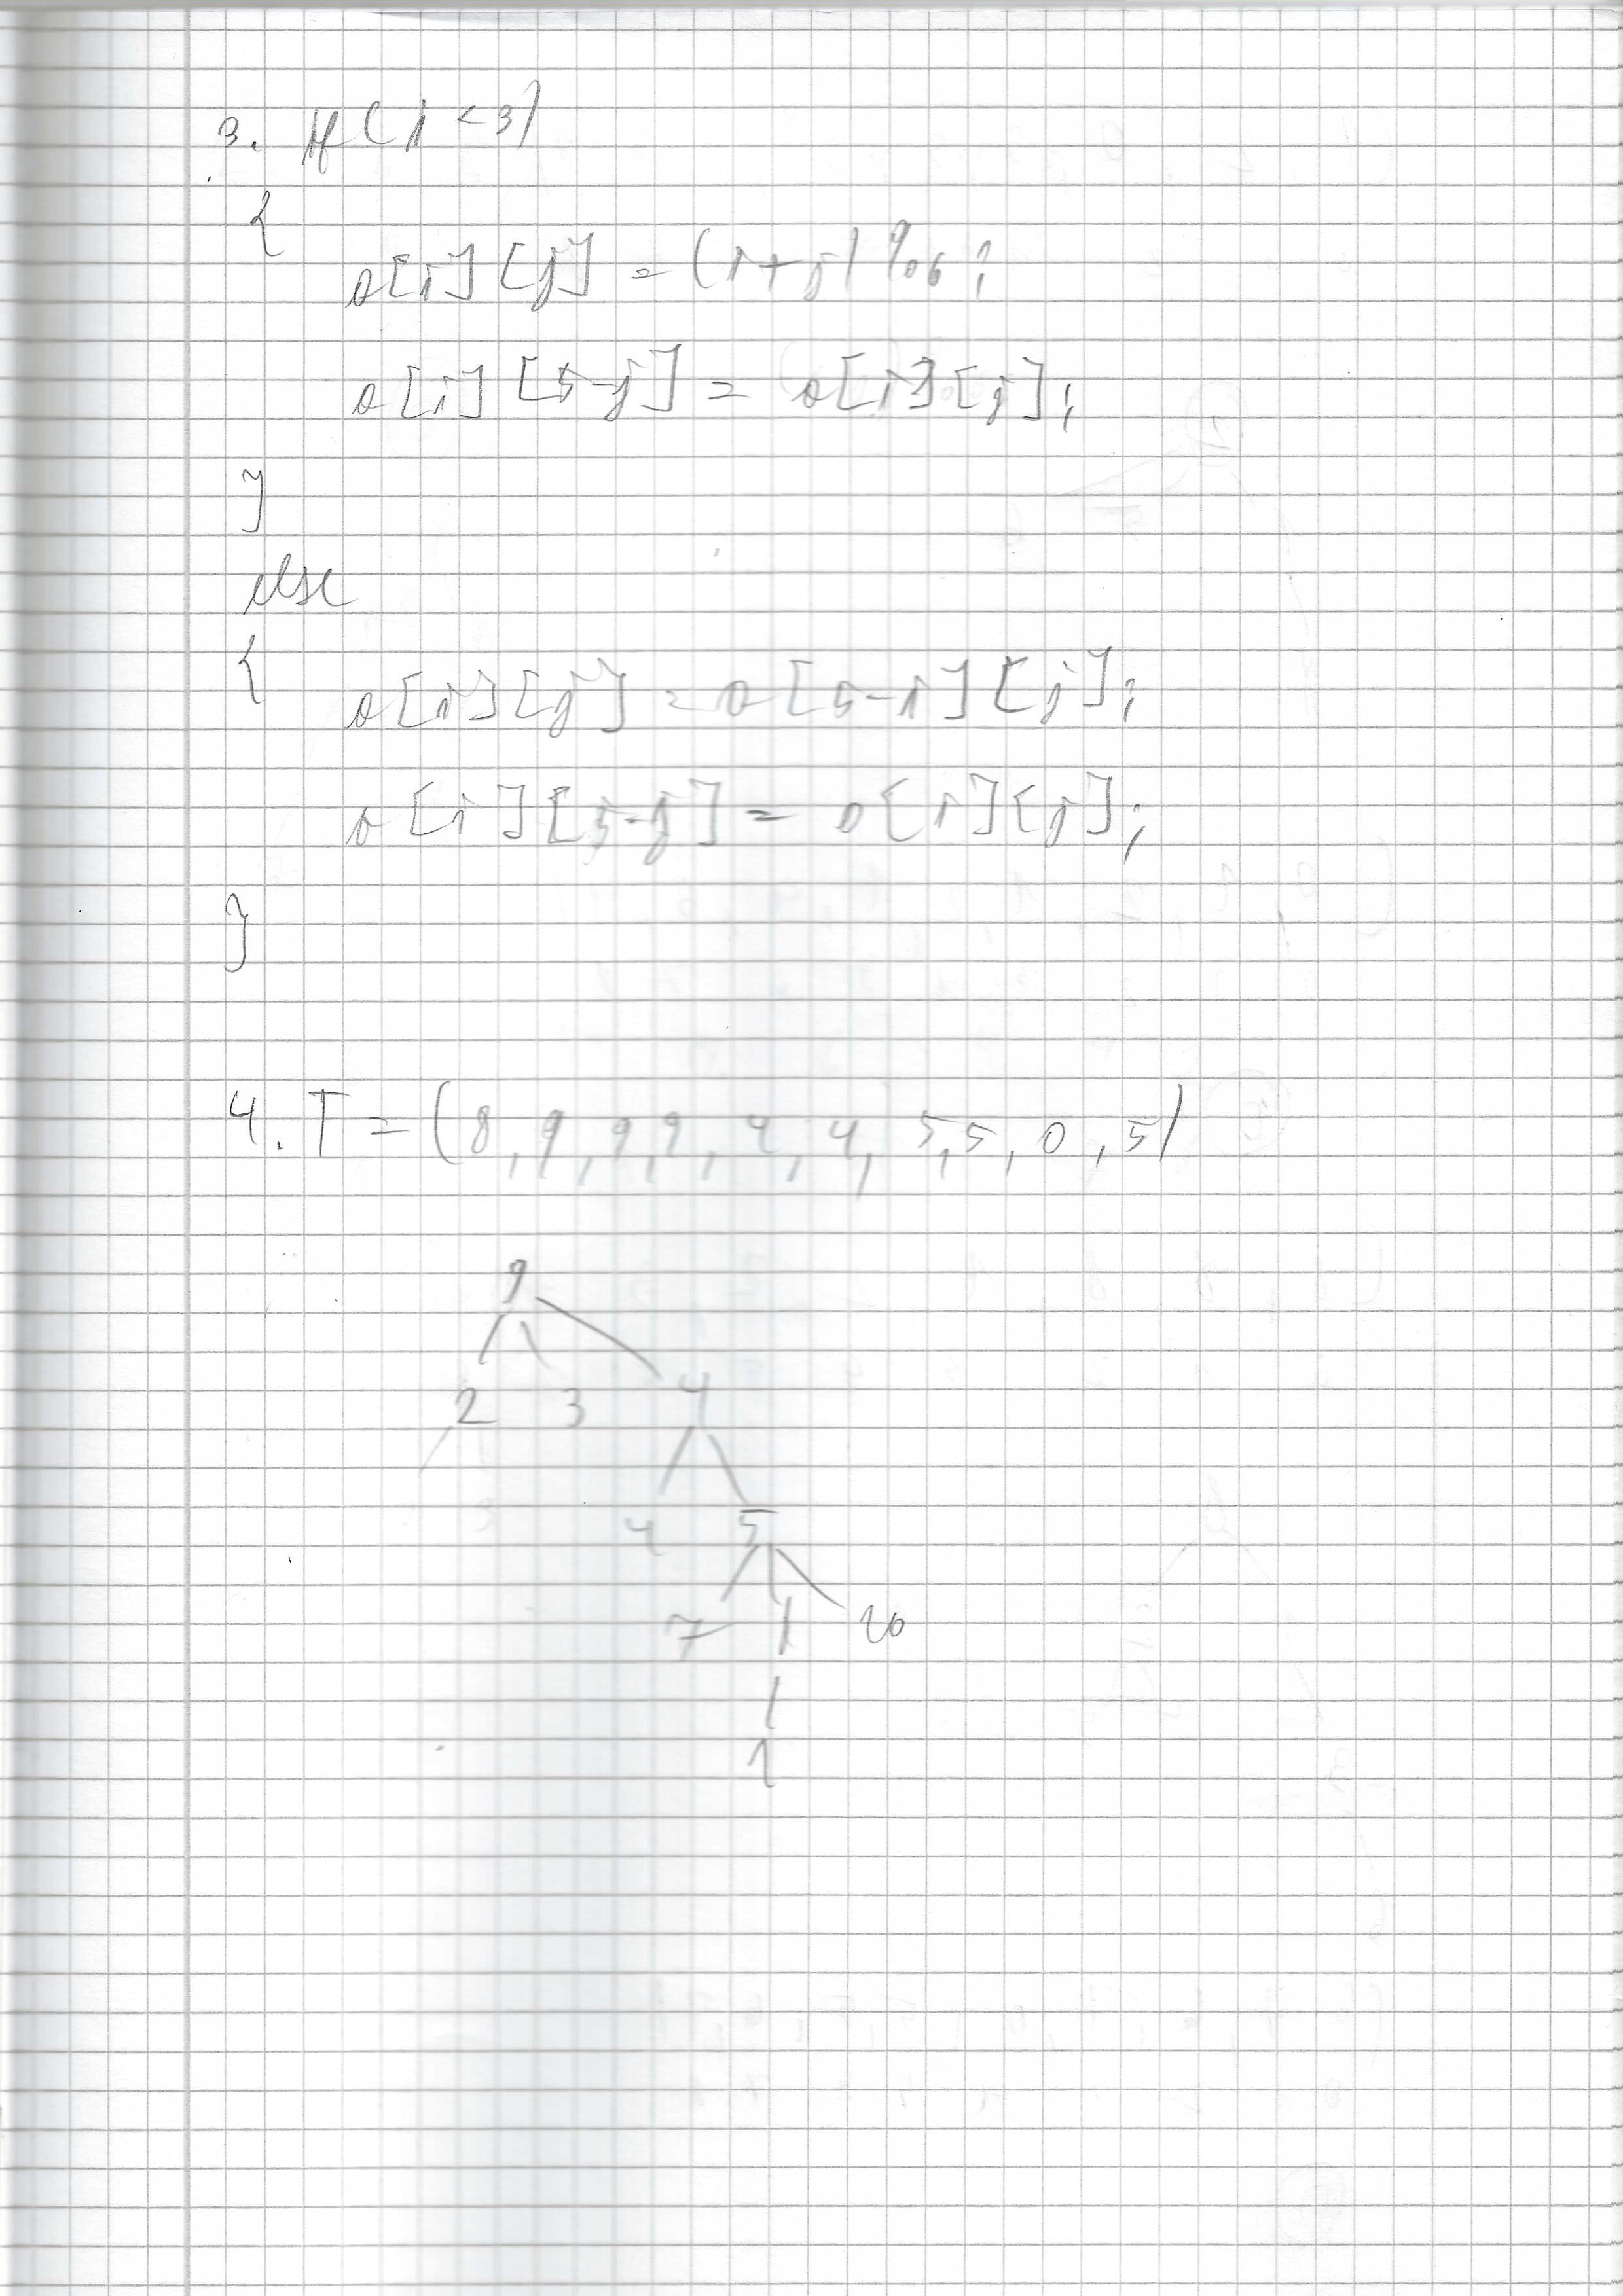 3. if(i<3)
{
a[i][j] = (i+j)%6;
a[i][5-j] = a[i][j];
}
else
{
a[i][j] = a[5-i][j];
a[i][5-j] = a[i][j];
}
4. T = (8,9,9,9,4,4,5,5,0,5)
9
2 3 4
4 5
7 10
1